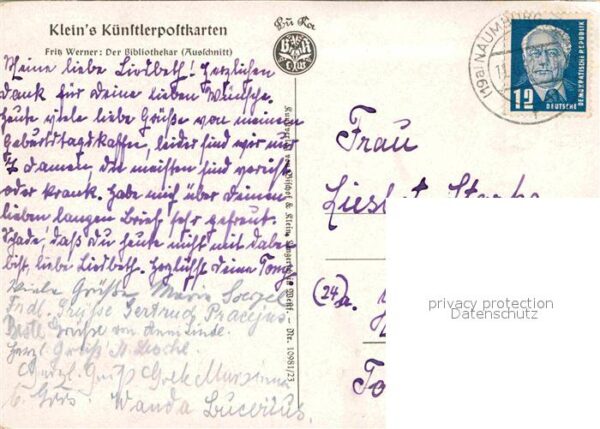 Klein's Künstlerpostkarten
Fritz Werner: Der Bibliothekar (Ausschnitt)
Meine liebe Liesbeth! Herzlichen
Dank für Deine lieben Wünsche.
Heute viele liebe Grüße von meinem
Geburtstagskaffee, leider sind wir nur
7 Damen, die meisten sind verreist
oder krank. Habe mich über Deinen
lieben langen Brief sehr gefreut.
Schade, daß Du heute nicht mit dabei
bist, liebe Liesbeth. Herzlichst Deine
Viele Grüße Marie
Frdl. Grüße Gertrud
Beste Grüße von
Herzl. Gruß
Herzl. Gruß
Gruß Wanda
BuKa
B K
Kunstverlag von Bischof & Klein, Lengerich i. Westf. - Nr. 10981/23
(19a) NAUMBURG
12
DEUTSCHE
DEMOKRATISCHE REPUBLIK
Frau
(24)a.
privacy protection
Datenschutz